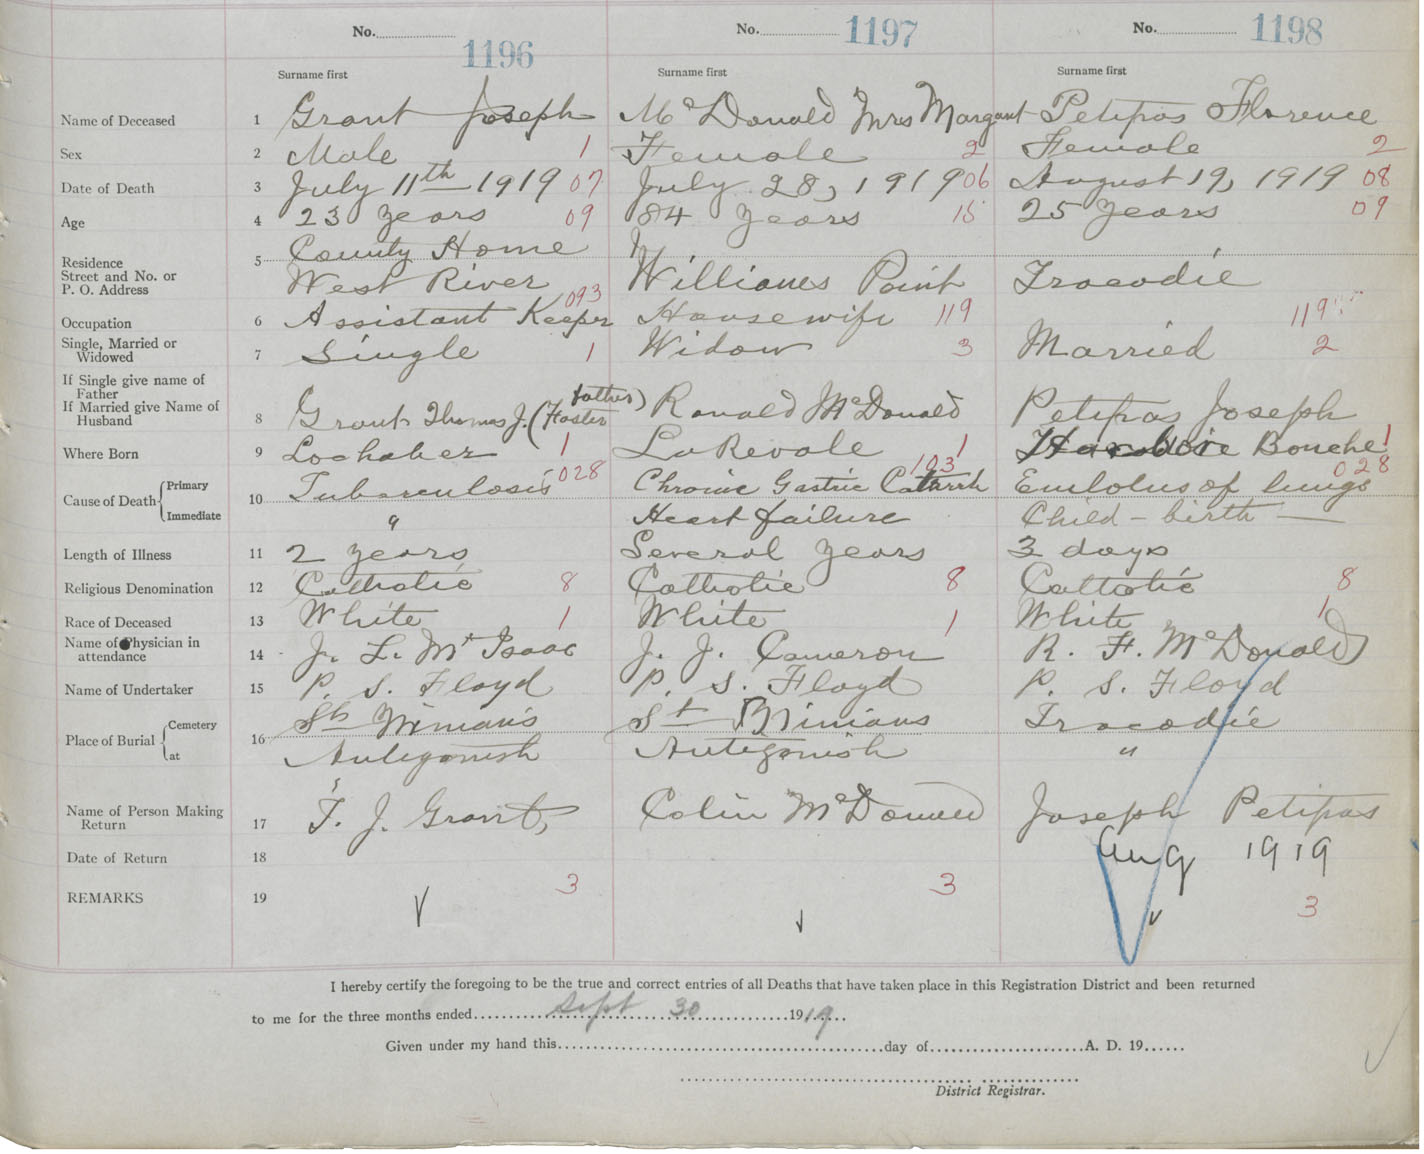 No. 1196 No. 1197 No. 1198
Surname first Surname first Surname first
Name of Deceased 1 Grant Joseph McDonald Mrs Margaret Petipas Florence
Sex 2 Male 1 Female 2 Female 2
Date of Death 3 July 11th 1919 07 July 28, 1919 06 August 19, 1919 08
Age 4 23 years 09 84 years 15 25 years 09
Residence 5 County Home
Street and No. or
P. O. Address West River Williams Point Tracadie
Occupation 6 Assistant Keeper 093 Housewife 119 119
Single, Married or
Widowed 7 Single 1 Widow 3 Married 2
If Single give name of
Father
If Married give Name of
Husband 8 Grant Thomas J. (Foster father) Ronald McDonald Petipas Joseph
Where Born 9 Lochaber 1 1 Harbour Bouche 1
Cause of Death Primary 10 Tuberculosis 028 Chronic Gastric Catarrh 103 Embolus of lungs 028
Immediate " Heart failure Child-birth
Length of Illness 11 2 years Several years 3 days
Religious Denomination 12 Catholic 8 Catholic 8 Catholic 8
Race of Deceased 13 White 1 White 1 White 1
Name of Physician in
attendance 14 J. L. McIsaac J. J. Cameron R. F. McDonald
Name of Undertaker 15 P. S. Floyd P. S. Floyd P. S. Floyd
Place of Burial Cemetery 16 St Ninian's St Ninians Tracadie
at Antigonish Antigonish "
Name of Person Making
Return 17 T. J. Grant Colin McDonald Joseph Petipas
Date of Return 18 Aug 1919
REMARKS 19 3 3 3
I hereby certify the foregoing to be the true and correct entries of all Deaths that have taken place in this Registration District and been returned
to me for the three months ended Sept 30 1919
Given under my hand this day of A. D. 19
District Registrar.